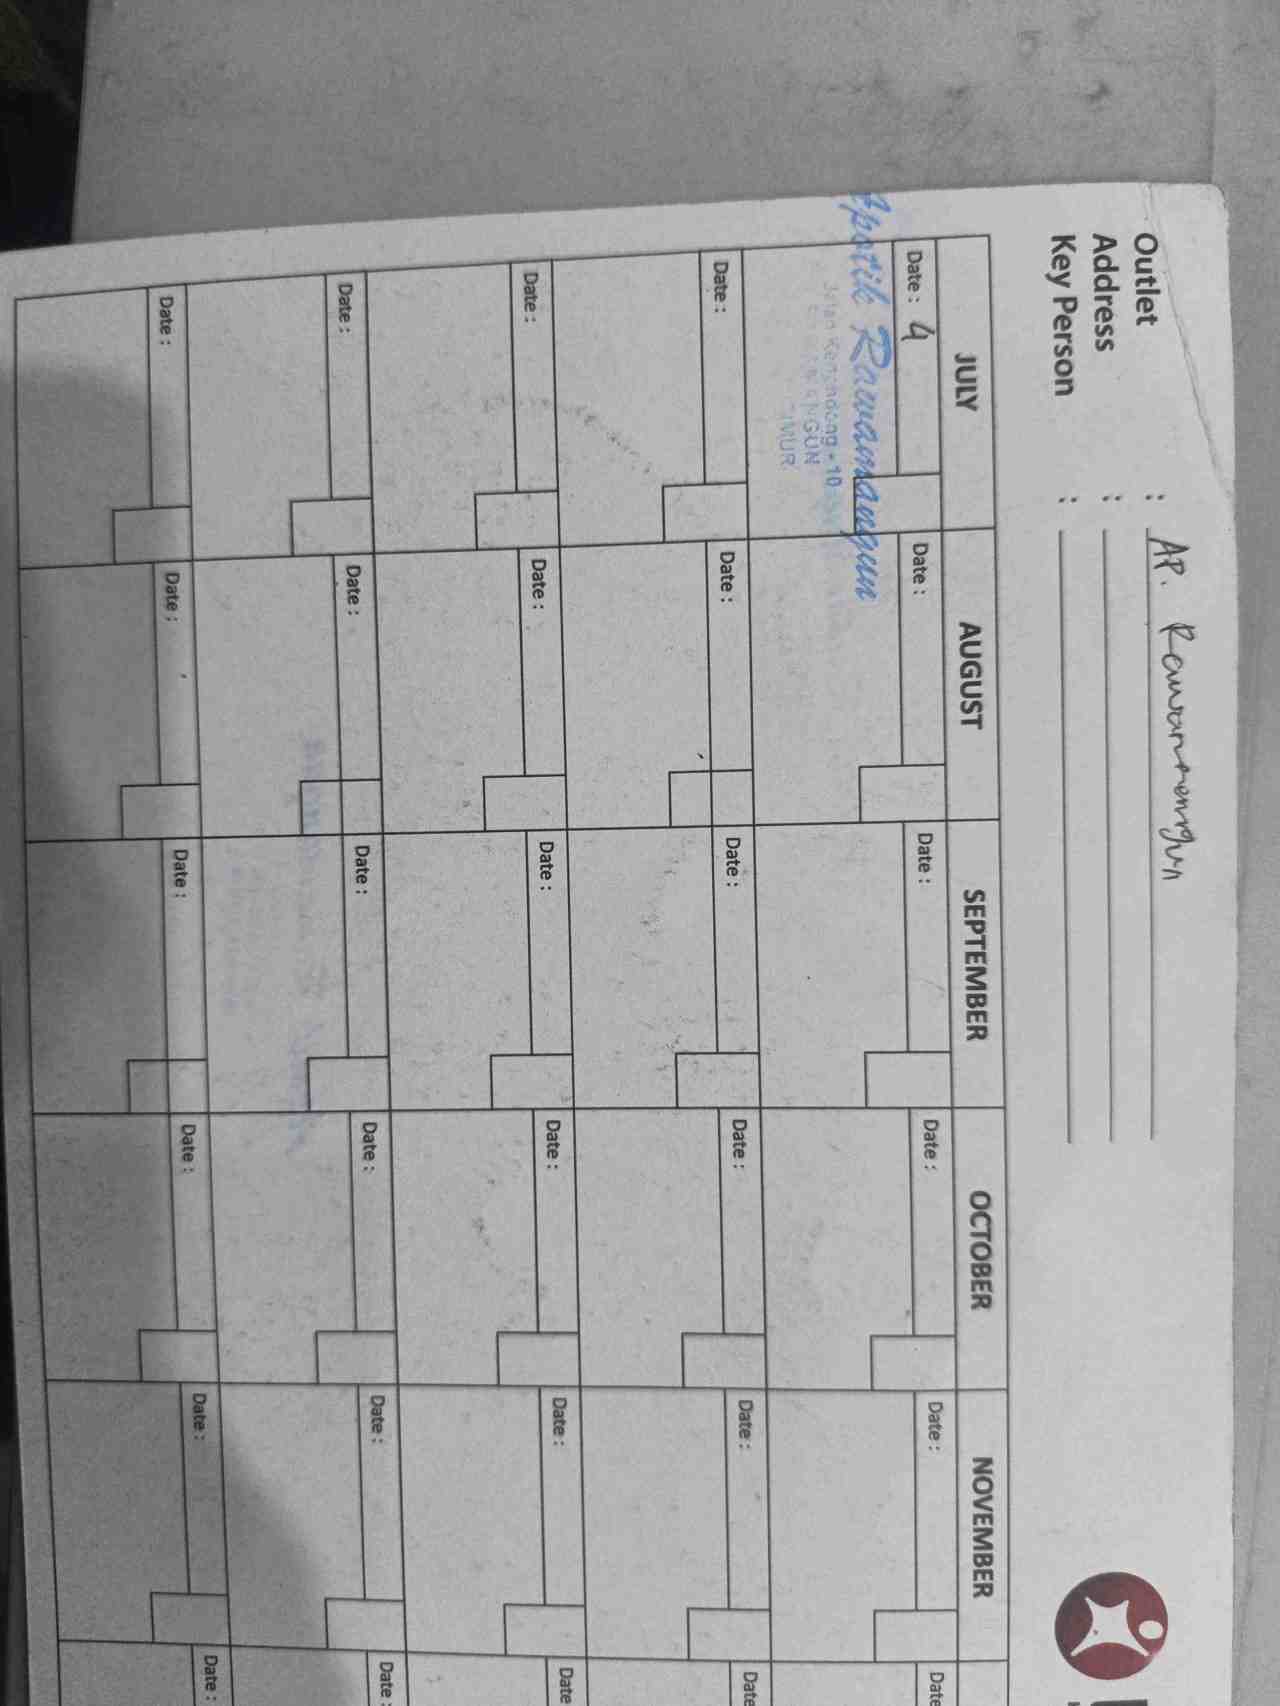 Outlet : AP. Rawamangun
Address :
Key Person :
JULY AUGUST SEPTEMBER OCTOBER NOVEMBER
Date : 4 Date : Date : Date : Date : Date
Apotik Rawamangun
10
Date : Date : Date : Date : Date : Date
Date : Date : Date : Date : Date : Date
Date : Date : Date : Date : Date : Date :
Date : Date : Date : Date : Date : Date :